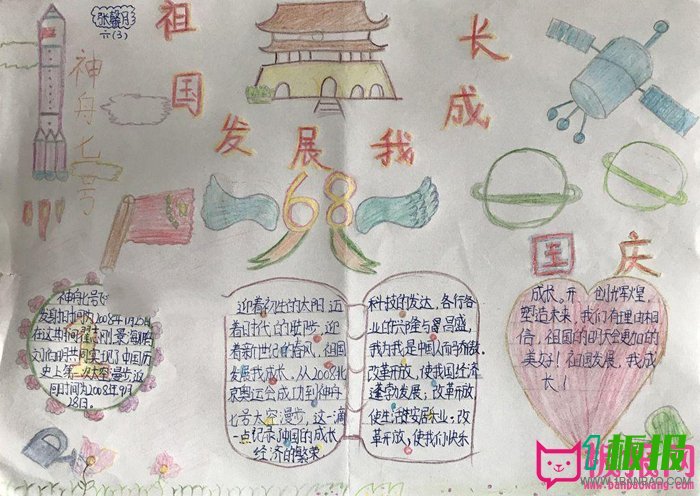 张馨月
六(3)
祖国发展我成长
神舟七号
68
国庆
神舟七号飞
发射时间为2008年9月25日
在这其间翟志刚、景海鹏
刘伯明共同实现了中国历
史上第一次太空漫步,返
回时间为2008年9月
28日。
迎着初生的太阳,迈
着时代的脚步,迎
着新世纪的春风,祖国
发展我成长。从2008北
京奥运会成功到神舟
七号太空漫步,这一滴
一点记录中国的成长
经济的繁荣
科技的发达,各行各
业的兴隆与昌盛,
我为我是中国人而骄傲。
改革开放,使我国经济
蓬勃发展;改革开放
使生活安居乐业;改
革开放,使我们快乐
成长。开创辉煌,
塑造未来,我们有理由相
信,祖国的明天会更加的
美好!祖国发展,我成
长!
板报网
www.banbaowang.com
1板报
1BANBAO.COM